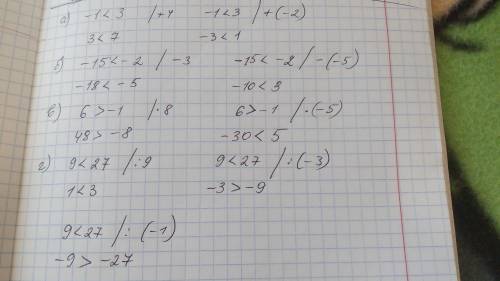 а) -1<3 /+4 -1<3 /+(-2)
3<7 -3<1
б) -15<-2 /-3 -15<-2 /-(-5)
-18<-5 -10<3
в) 6>-1 /·8 6>-1 /·(-5)
48>-8 -30<5
г) 9<27 /:9 9<27 /:(-3)
1<3 -3>-9
9<27 /: (-1)
-9>-27